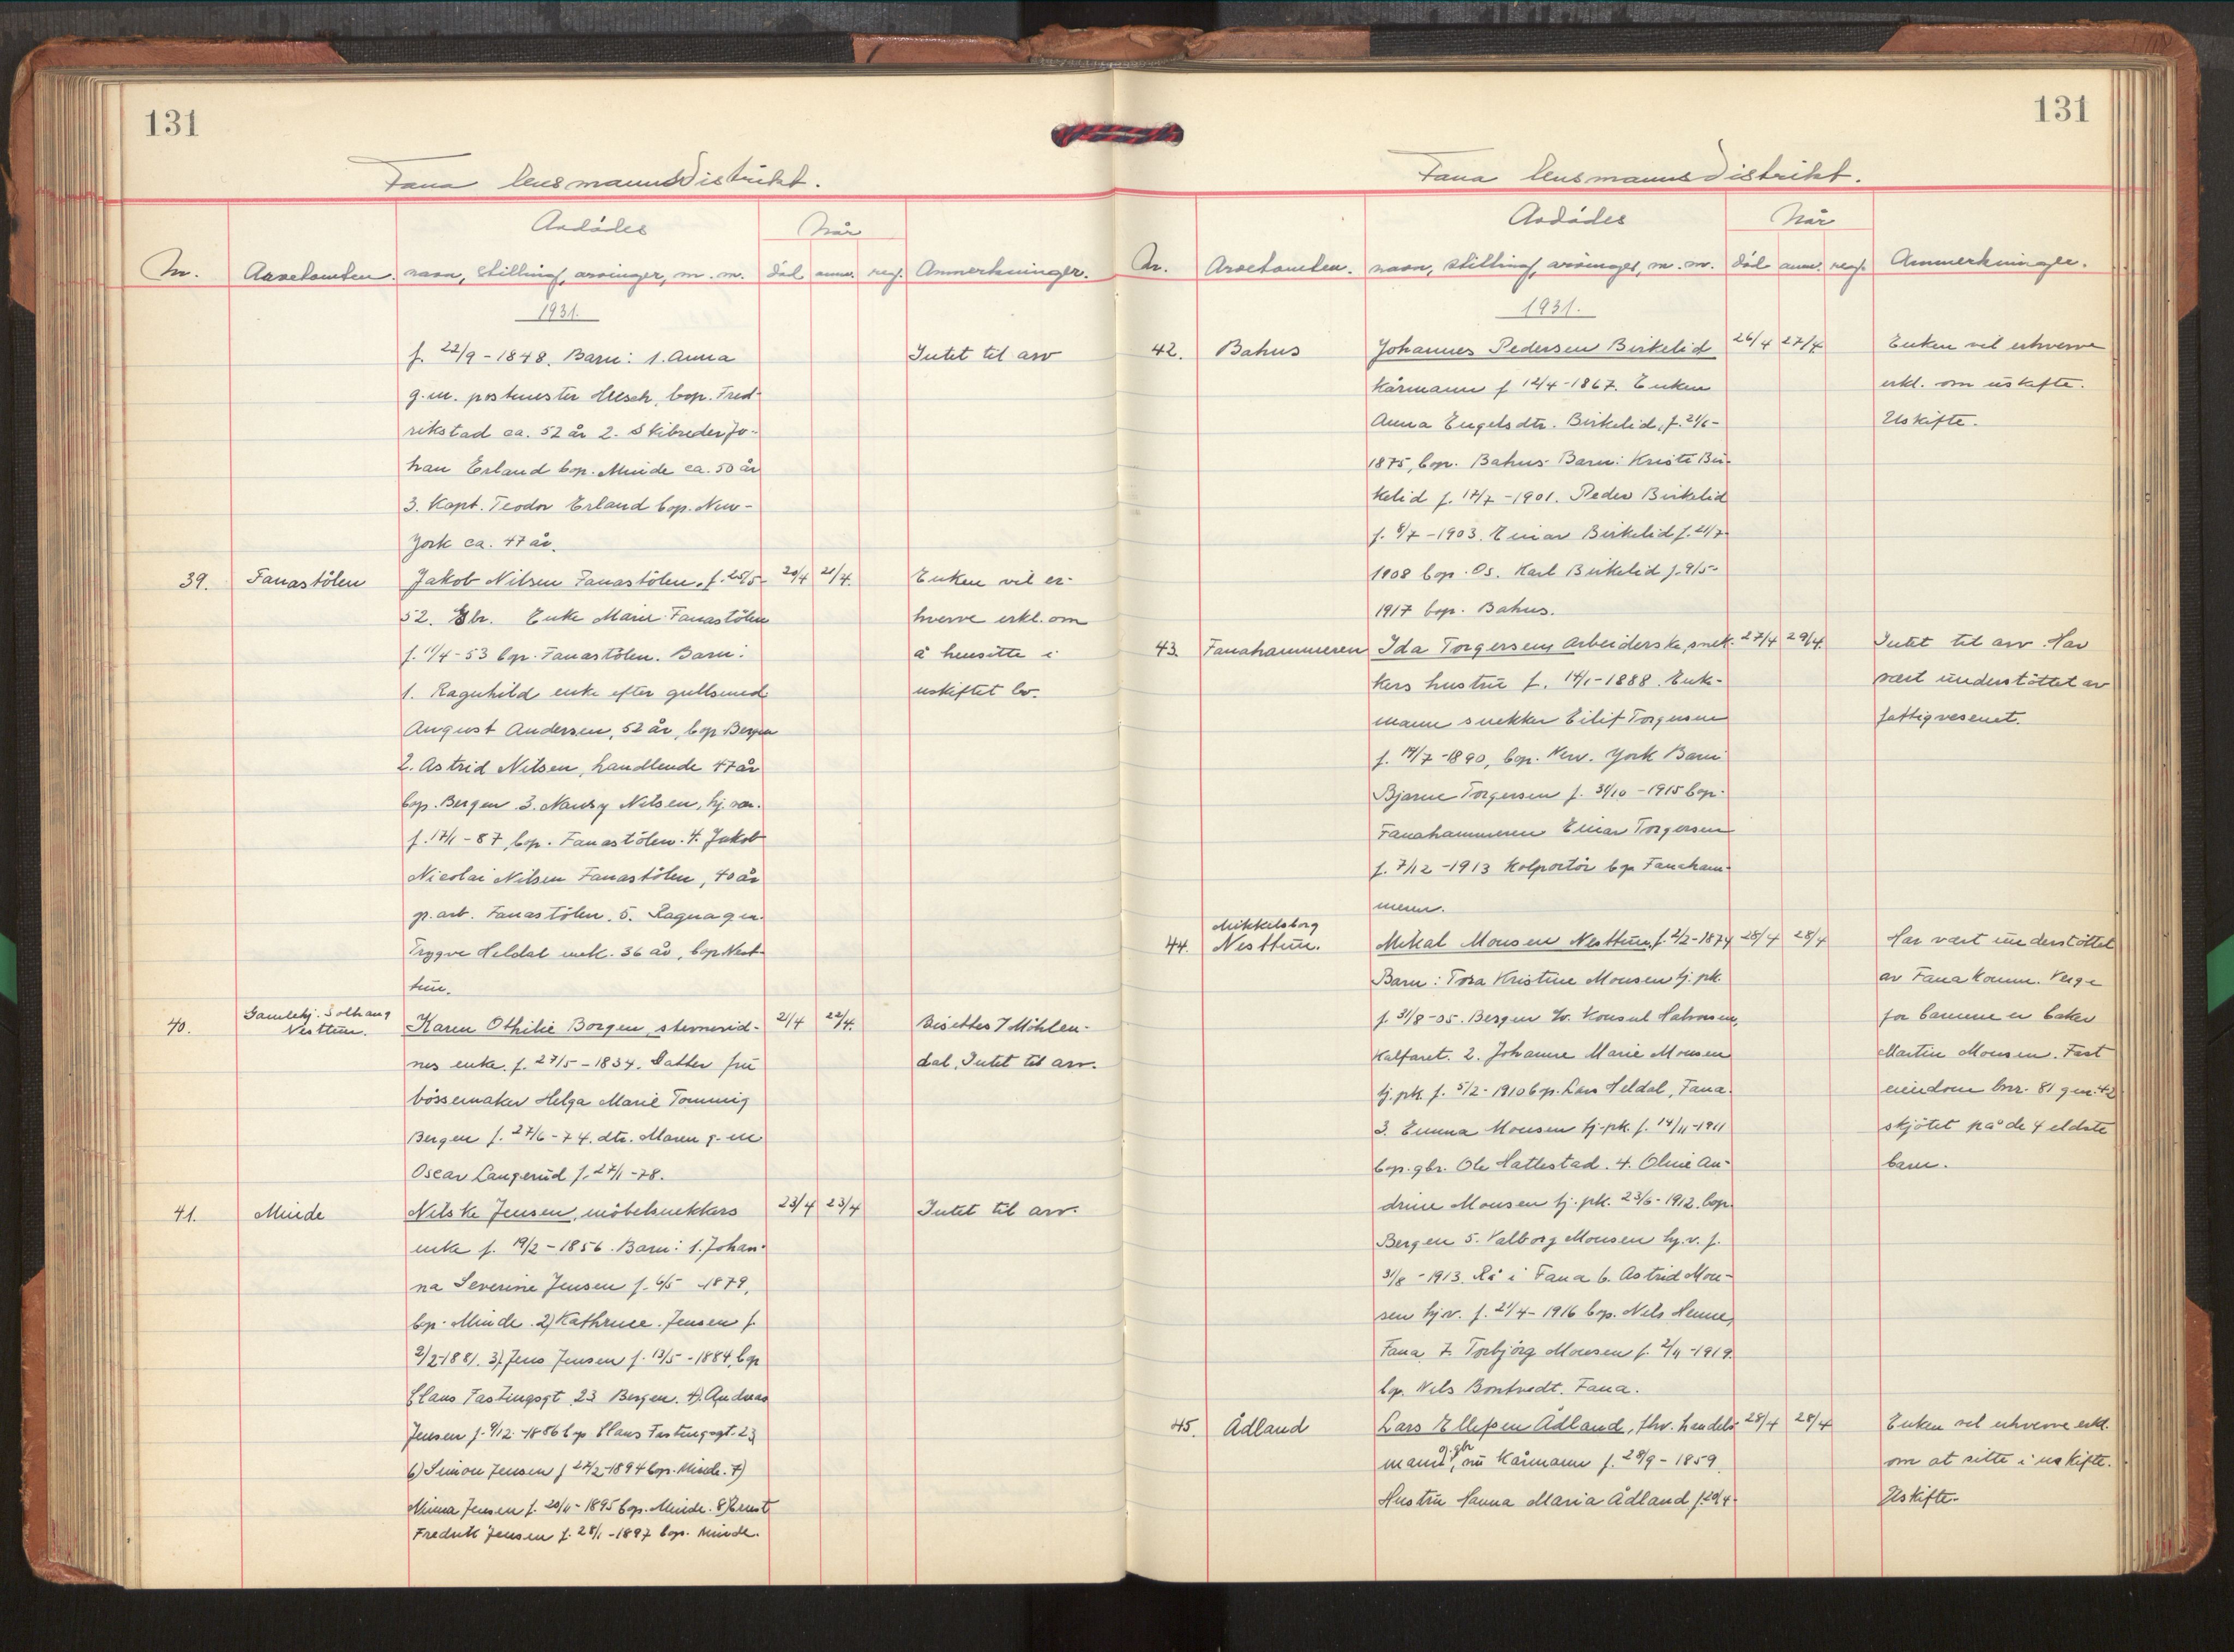 131
Fana lensmannsdistrikt.
Avdødes
Når
Nr. Aavetomten. navn, stilling, arvinger, m. m. død anm. reg. Anmerkninger.
1931.
f. 22/9 - 1848. Barn: 1. Anna
Intet til arv
g.m. postmester , bop. Fred-
rikstad ca. 52 år 2. Skibsreder Jo-
han Erland bop. Minde ca. 50 år
3. Kapt. Teodor Erland bop. New-
York ca. 47 år.
39. Fanastölen Jakob Nilsen Fanastölen. f. 25/5- 20/4 21/4. Enken vil er-
52. Gbr. Enke Marie Fanastölen hverve erkl. om
f. 11/4 - 53 bop. Fanastölen. Barn: å hensitte i
1. Ragnhild enke efter gullsmed uskiftet bo.
August Andersen, 52 år, bop Bergen
2. Astrid Nilsen, handlende 47 år
bop. Bergen 3. Nansy Nilsen, hj. vær.
f. 17/1 - 87, bop. Fanastölen. 4. Jakob
Nicolai Nilsen Fanastölen, 40 år
p. arb. Fanastölen. 5. Ragna g.m.
Trygve Heldal mek. 36 år, bop Nest-
tun.
40. Gamlehj. Solhaug
Nesttun. Karen Othilie Borgen, styrmand- 21/4 22/4. Bisettes Möhlen-
nes enke. f. 27/5 - 1834. Datter fru dal, Intet til arv.
bössemaker Helga Marie Tommig
Bergen f. 27/6 - 74. dtr. Maren g. m
Oscar Langerud f. 27/1 - 78.
41. Minde Nilske Jensen, möbelsnekkers 23/4 23/4 Intet til arv.
enke f. 19/2 - 1856. Barn: 1. Johan-
na Severine Jensen f. 6/5 - 1879,
bop. Minde. 2) Kathrine Jensen f.
2/2-1881. 3) Jens Jensen f. 13/5 - 1884, bop
Claus Fastingsgt 23 Bergen. 4) Andreas
Jensen f. 9/12 - 1886 bop Claus Fastingsgt. 23
6) Simon Jensen f 27/2-1894 bop. Minde. 7)
Minna Jensen f. 20/11 - 1895 bop. Minde. 8) Ernst
Fredrik Jensen f. 28/1 - 1897 bop. Minde.
131
Fana lensmannsdistrikt.
Avdødes
Når
Nr. Arvetomten. navn, stilling, arvinger, m. m. død anm. reg. Anmerkninger.
1931.
42. Bahus Johannes Pedersen Birkelid 26/4 27/4 Enken vil erhverve
kårmann f 12/4 - 1867. Enken erkl. om uskifte.
Anna Engelsdtr. Birkelid, f. 21/6 - Uskifte.
1875, bop. Bahus. Barn: Kriste Bir-
kelid f. 17/7 - 1901. Peder Birkelid
f. 8/7 - 1903. Einar Birkelid f. 21/7-
1908 bop. Os. Karl Birkelid f. 9/5 -
1917 bop. Bahus.
43. Fanahammeren Ida Torgersen, arbeiderske, snek- 27/4 29/4. Intet til arv. Har
kers hustru f. 14/1 - 1888. Enke- vært understöttet av
mann snekker Eilif Torgersen fattigvesenet.
f. 19/7 - 1890, bop. New. York Barn
Bjarne Torgersen f. 31/10 - 1915 bop.
Fanahammeren Einar Torgersen
f. 7/12 - 1913 Kolportör bop Fanaham-
meren.
44. Mikkelsborg
Nesttun. Mikal Monsen Nesttun, f. 2/2 - 1874 28/4 28/4 Har vært understöttet
Barn: Tora Kristine Monsen tj. pk. av Fana komm. Verge
f. 31/8 - 05. Bergen Konsul Halvorsen, for barnene er baker
Kalfaret. 2. Johanne Marie Monsen Martin Monsen. Fast
tj. pk. f. 5/2 - 1910 bop. Lars Heldal, Fana. eiendom bnr. 81 gnr. 42
3. Emma Monsen tj. pk. f. 14/11 - 1911 skjötet på de 4 eldste
bop. gbr. Ole Hattestad. 4. Oline An- barn.
drine Monsen tj. pk. 23/6 - 1912. bop.
Bergen 5. Valborg Monsen hj. v. f.
31/8 - 1913. Rå i Fana 6. Astrid Mon-
sen hj. v. f. 21/4 - 1916 bop. Nels Henne,
Fana 7. Torbjörg Monsen f. 2/11 - 1919.
bop. Nils Bontvedt. Fana.
45. Ådland Lars Ellefsen Ådland, fhv. handels- 28/4 28/4 Enken vil erhverve erkl.
mand, g. gbr nu kårmann f. 28/9 - 1859. om at sitte i uskifte.
Hustru Hanna Maria Ådland f. 29/4- Uskifte.